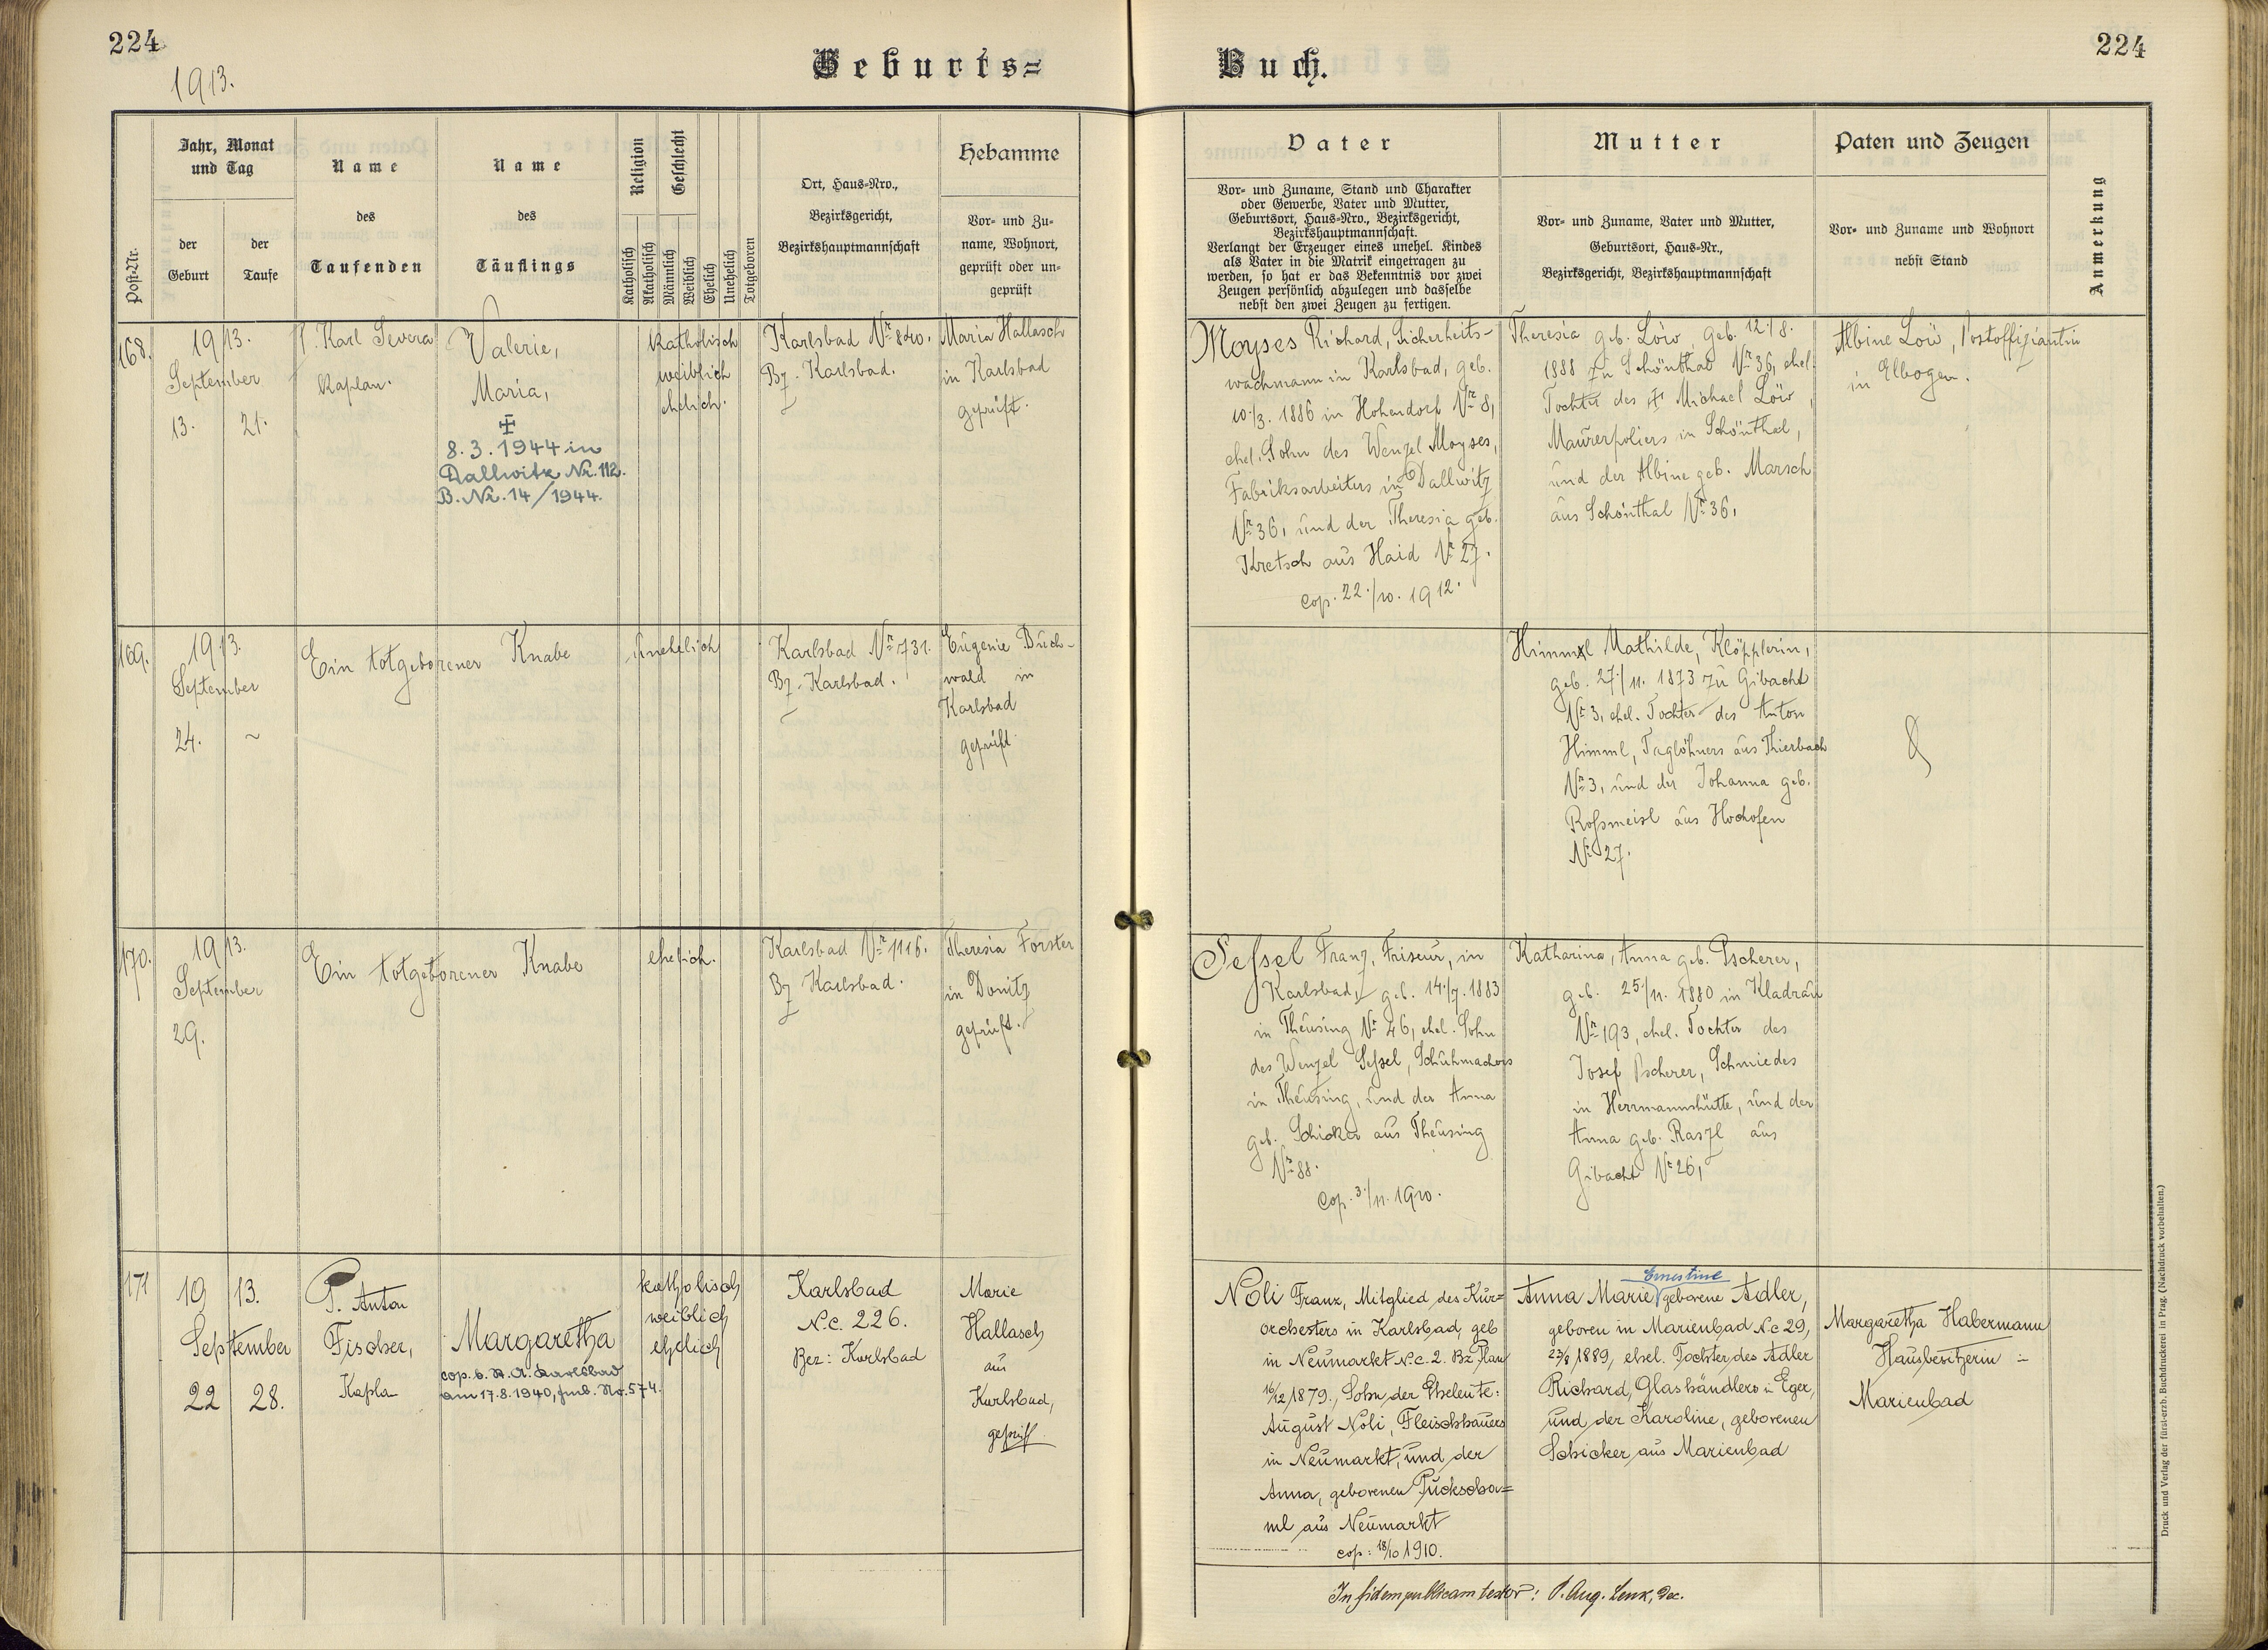 224
1913.
Geburts=
Buch.
224
Post-Nr.
Jahr, Monat
und Tag
der
Geburt
der
Taufe
Name
des
Taufenden
Name
des
Täuflings
Religion
Geschlecht
Katholisch
Akatholisch
Männlich
Weiblich
Ehelich
Unehelich
Totgeboren
Ort, Haus-Nro.,
Bezirksgericht,
Bezirkshauptmannschaft
Hebamme
Vor- und Zu-
name, Wohnort,
geprüft oder un-
geprüft
Vater
Vor- und Zuname, Stand und Charakter
oder Gewerbe, Vater und Mutter,
Geburtsort, Haus-Nro., Bezirksgericht,
Bezirkshauptmannschaft.
Verlangt der Erzeuger eines unehel. Kindes
als Vater in die Matrik eingetragen zu
werden, so hat er das Bekenntnis vor zwei
Zeugen persönlich abzulegen und dasselbe
nebst den zwei Zeugen zu fertigen.
Mutter
Vor- und Zuname, Vater und Mutter,
Geburtsort, Haus-Nr.,
Bezirksgericht, Bezirkshauptmannschaft
Paten und Zeugen
Vor- und Zuname und Wohnort
nebst Stand
Anmerkung
168.
1913.
September
13. 21.
P. Karl Severa
Kaplan.
Valerie,
Maria,
8.3.1944 in
Dallwitz Nr. 112.
B. Nr. 14/1944.
katholisch
weiblich
ehelich.
Karlsbad Nr 840.
Bz. Karlsbad.
Maria Hallasch
in Karlsbad
geprüft.
Moyses Richard, Sicherheits-
wachmann in Karlsbad, geb.
10./3. 1886 in Hohendorf Nr 8,
ehel. Sohn des Wenzel Moyses,
Fabriksarbeiters in Dallwitz
Nr 36, und der Theresia geb.
Kretsch aus Haid Nr 27.
cop. 22./10. 1912.
Theresia geb. Löw, geb. 12./8.
1888 zu Schönthal Nr 36, ehel.
Tochter des Michael Löw,
Maurerpoliers in Schönthal,
und der Albine geb. Marsch
aus Schönthal Nr 36.
Albine Löw, Postoffiziantin
in Elbogen.
169.
1913.
September
24. ~
Ein totgeborener Knabe
unehelich
Karlsbad Nr 731.
Bz. Karlsbad.
Eugenie Buch-
wald in
Karlsbad
geprüft
Himml Mathilde, Klöpplerin,
geb. 27./11. 1873 zu Gibacht
Nr 3, ehel. Tochter des Anton
Himml, Taglöhners aus Thierbach
Nr 3, und der Johanna geb.
Roßmeisl aus Hochofen
Nr 27.
170.
1913.
September
29.
Ein totgeborener Knabe
ehelich.
Karlsbad Nr 1116.
Bz Karlsbad.
Theresia Forster
in Donitz
geprüft.
Seßsel Franz, Friseur, in
Karlsbad, geb. 14./7. 1883
in Theusing Nr 46, ehel. Sohn
des Wenzel Seßsel, Schuhmachers
in Theusing, und der Anna
geb. Schicker aus Theusing
Nr 88.
cop. 3./11. 1910.
Katharina, Anna geb. Pscherer,
geb. 25./11. 1880 in Kladrau
Nr 193, ehel. Tochter des
Josef Pscherer, Schmiedes
in Herrmannshütte, und der
Anna geb. Raszl aus
Gibacht Nr 26,
171
1913.
September
22 28.
P. Anton
Fischer,
Kapla
Margaretha
cop. b. St. A. Karlsbad
am 17.8.1940, Nr. 574.
katholisch
weiblich
ehelich
Karlsbad
N.c. 226.
Bez: Karlsbad
Marie
Hallasch
aus
Karlsbad,
geprüft
Noli Franz, Mitglied des Kur=
orchesters in Karlsbad, geb
in Neumarkt N.c. 2. Bz Plan
16/12 1879., Sohn der Eheleute:
August Noli, Fleischhauers
in Neumarkt, und der
Anna, geborenen Puckscha=
ml aus Neumarkt
cop: 18/10 1910.
Ernestine
Anna Marie geborene Adler,
geboren in Marienbad N.c 29,
23/8 1889, ehel. Tochter des Adler
Richard, Glashändlers in Eger,
und der Karoline, geborenen
Schicker aus Marienbad
Margaretha Habermann
Hausbesitzerin in
Marienbad
In fidem publicam testor: P. Aug. Lenk, Dec.
Druck und Verlag der fürst-erzb. Buchdruckerei in Prag. (Nachdruck vorbehalten.)